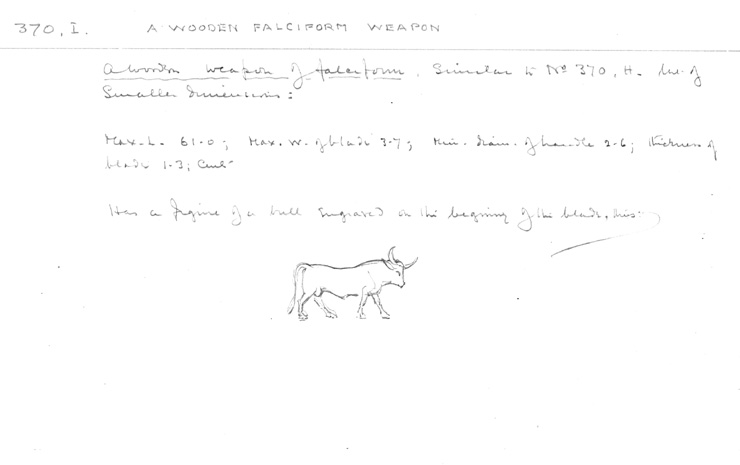 370, I. A WOODEN FALCIFORM WEAPON
A wooden weapon of falciform. Similar to Nº 370, H. but of
Smaller dimensions:
Max. L. 61·0; Max. W. of blade 3·7; Min. diam. of handle 2·6; thickness of
blade 1·3; Cent
Has a figure of a bull engraved on the begining of the blade, this: